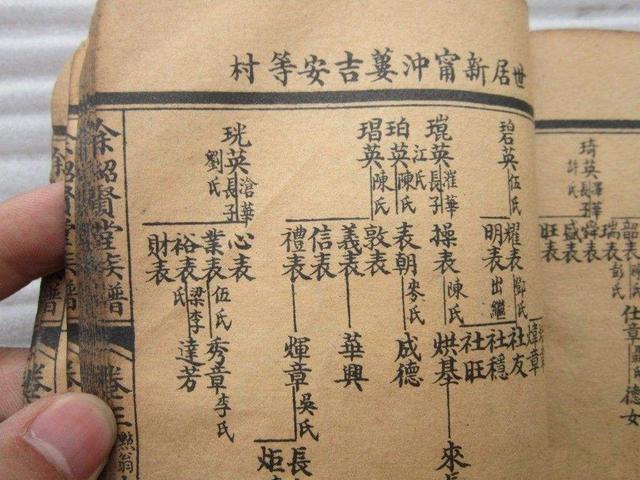 世居新甯沖蔞吉安等村
琦英澤華長子許氏
韶表陳氏彭氏
瑞表
舜表
盛表
旺表
仕章
德女
碧英伍氏
耀表鄭氏
明表出繼
煒章
社友
社穩
社旺
琨英漼華長子江氏
操表陳氏
烘基
來
珀英陳氏
琩英陳氏
表朝麥氏
敦表
義表
信表
禮表
成德
華興
煇章吳氏
長
炬
珖英滄華長子劉氏
心表
業表伍氏
裕表梁李氏
財表
秀章李氏
達芳
余紹賢堂族譜
卷三
點翁